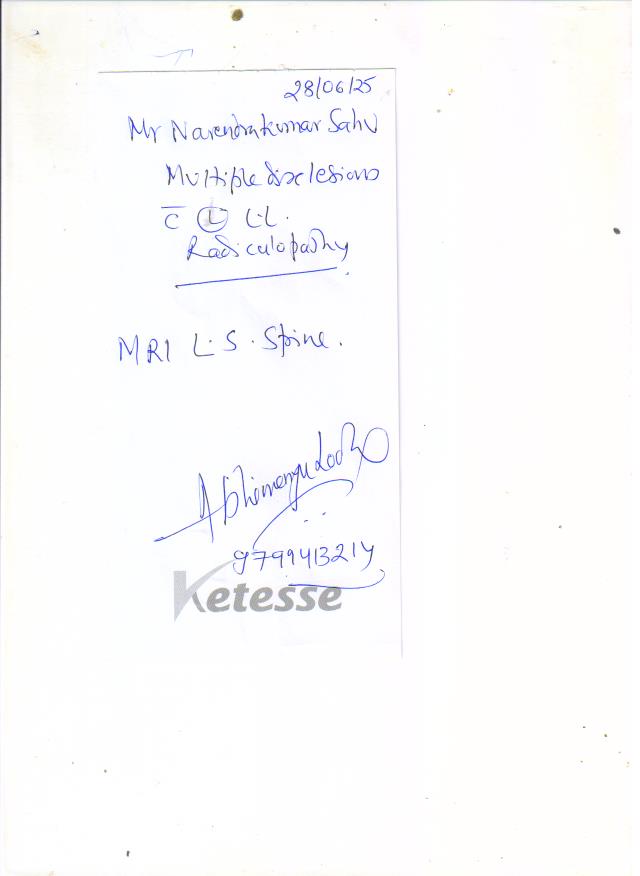 28/06/25
Mr Narendrakumar Sahu
Multiple disc lesions
c̄ Ⓛ L.L.
Radiculopathy
MRI L.S. Spine.
Abhimanyu
9799413214
Ketesse